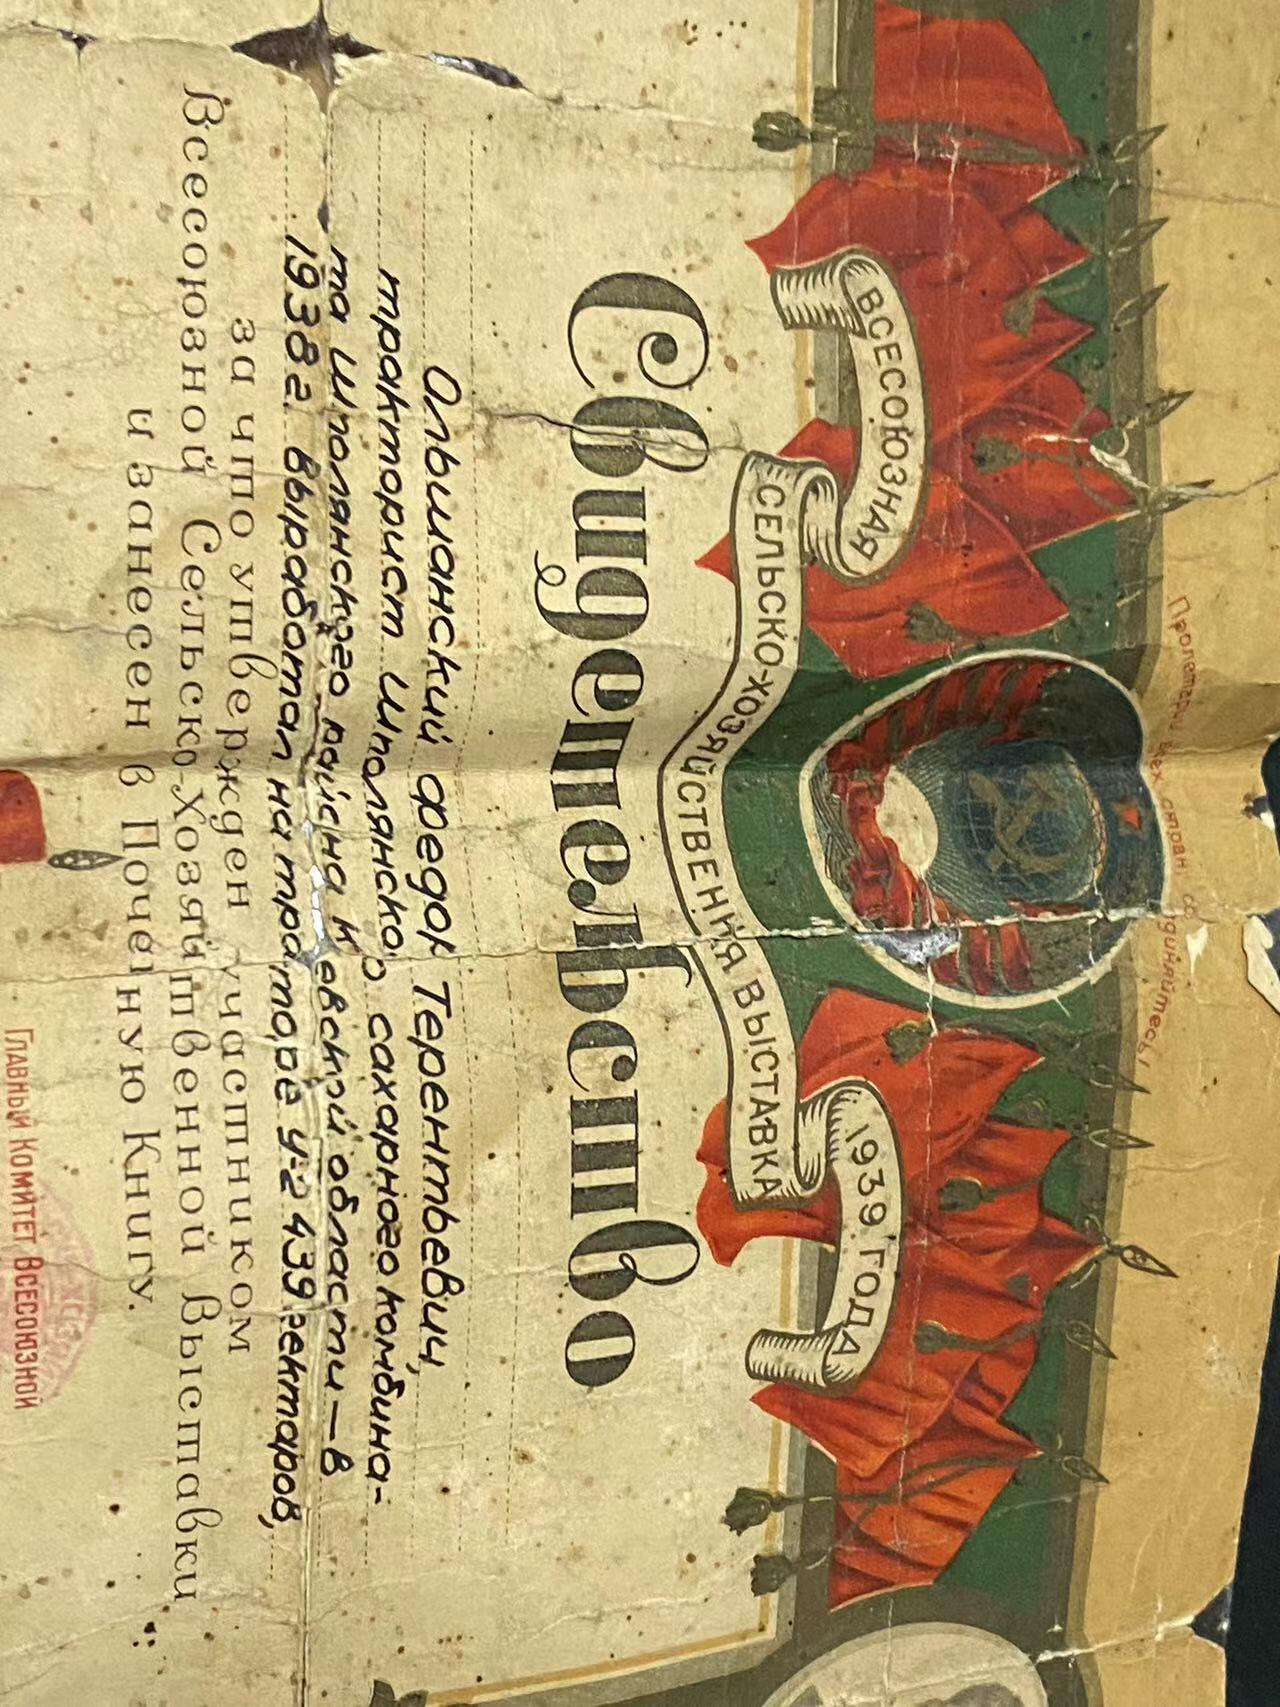 Пролетарии всех стран, соединяйтесь!
ВСЕСОЮЗНАЯ
СЕЛЬСКО-ХОЗЯЙСТВЕННАЯ ВЫСТАВКА
1939 ГОДА
Свидетельство
Ольшанский Федор Терентьевич,
тракторист Шполянского сахарного комбина-
та Шполянского района Киевской области — в
1938 г. выработал на тракторе У-2 439 гектаров,
за что утвержден участником
Всесоюзной Сельско-Хозяйственной Выставки
и занесен в Почетную Книгу.
ГЛАВНЫЙ КОМИТЕТ ВСЕСОЮЗНОЙ